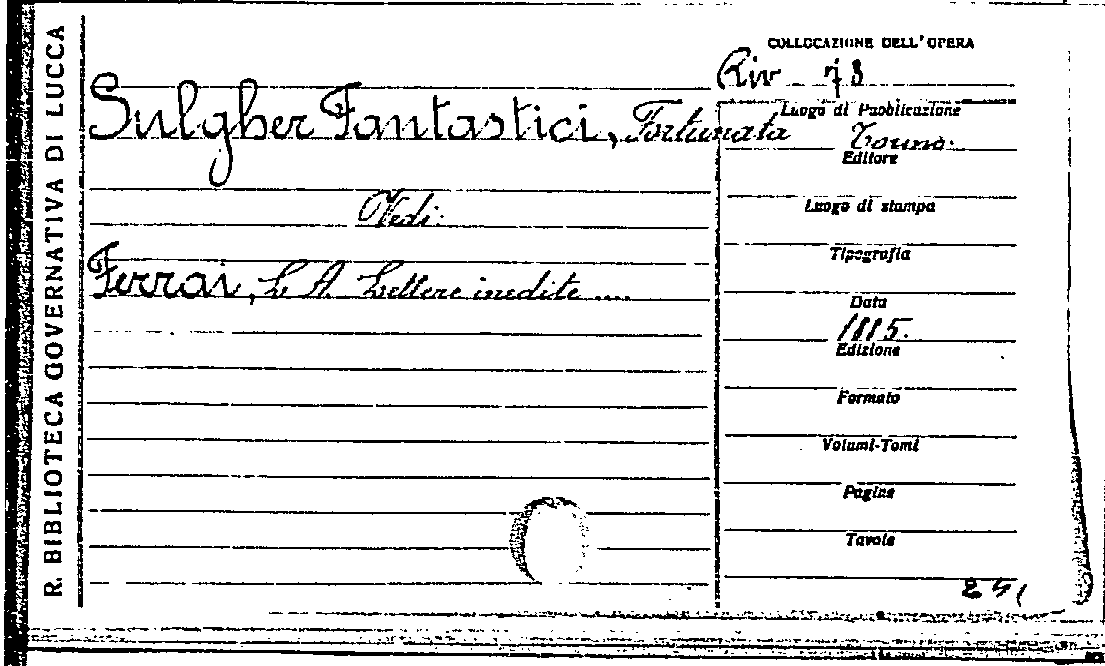 R. BIBLIOTECA GOVERNATIVA DI LUCCA
COLLOCAZIONE DELL'OPERA
Riv 78
Sulgher Fantastici, Fortunata
Luogo di Pubblicazione
Torino.
Editore
Vedi:
Luogo di stampa
Tipografia
Ferrai, L. A. Lettere inedite ....
Data
1885.
Edizione
Formato
Volumi-Tomi
Pagine
Tavole